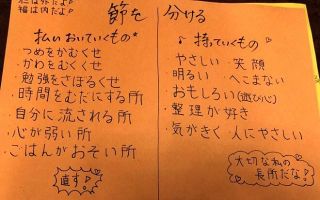 福は内だよ♪
節を 分ける
払いおいていくもの*
・つめをかむくせ
・かわをむくくせ
・勉強をさぼるくせ
・時間をむだにする所
・自分に流される所
・心が弱い所
・ごはんがおそい所
直す♪
♪持っていくもの♪
・やさしい 笑顔
・明るい ・へこまない
・おもしろい(遊び心)
・整理が好き
・気がきく 人にやさしい
大切な私の
長所だな♪